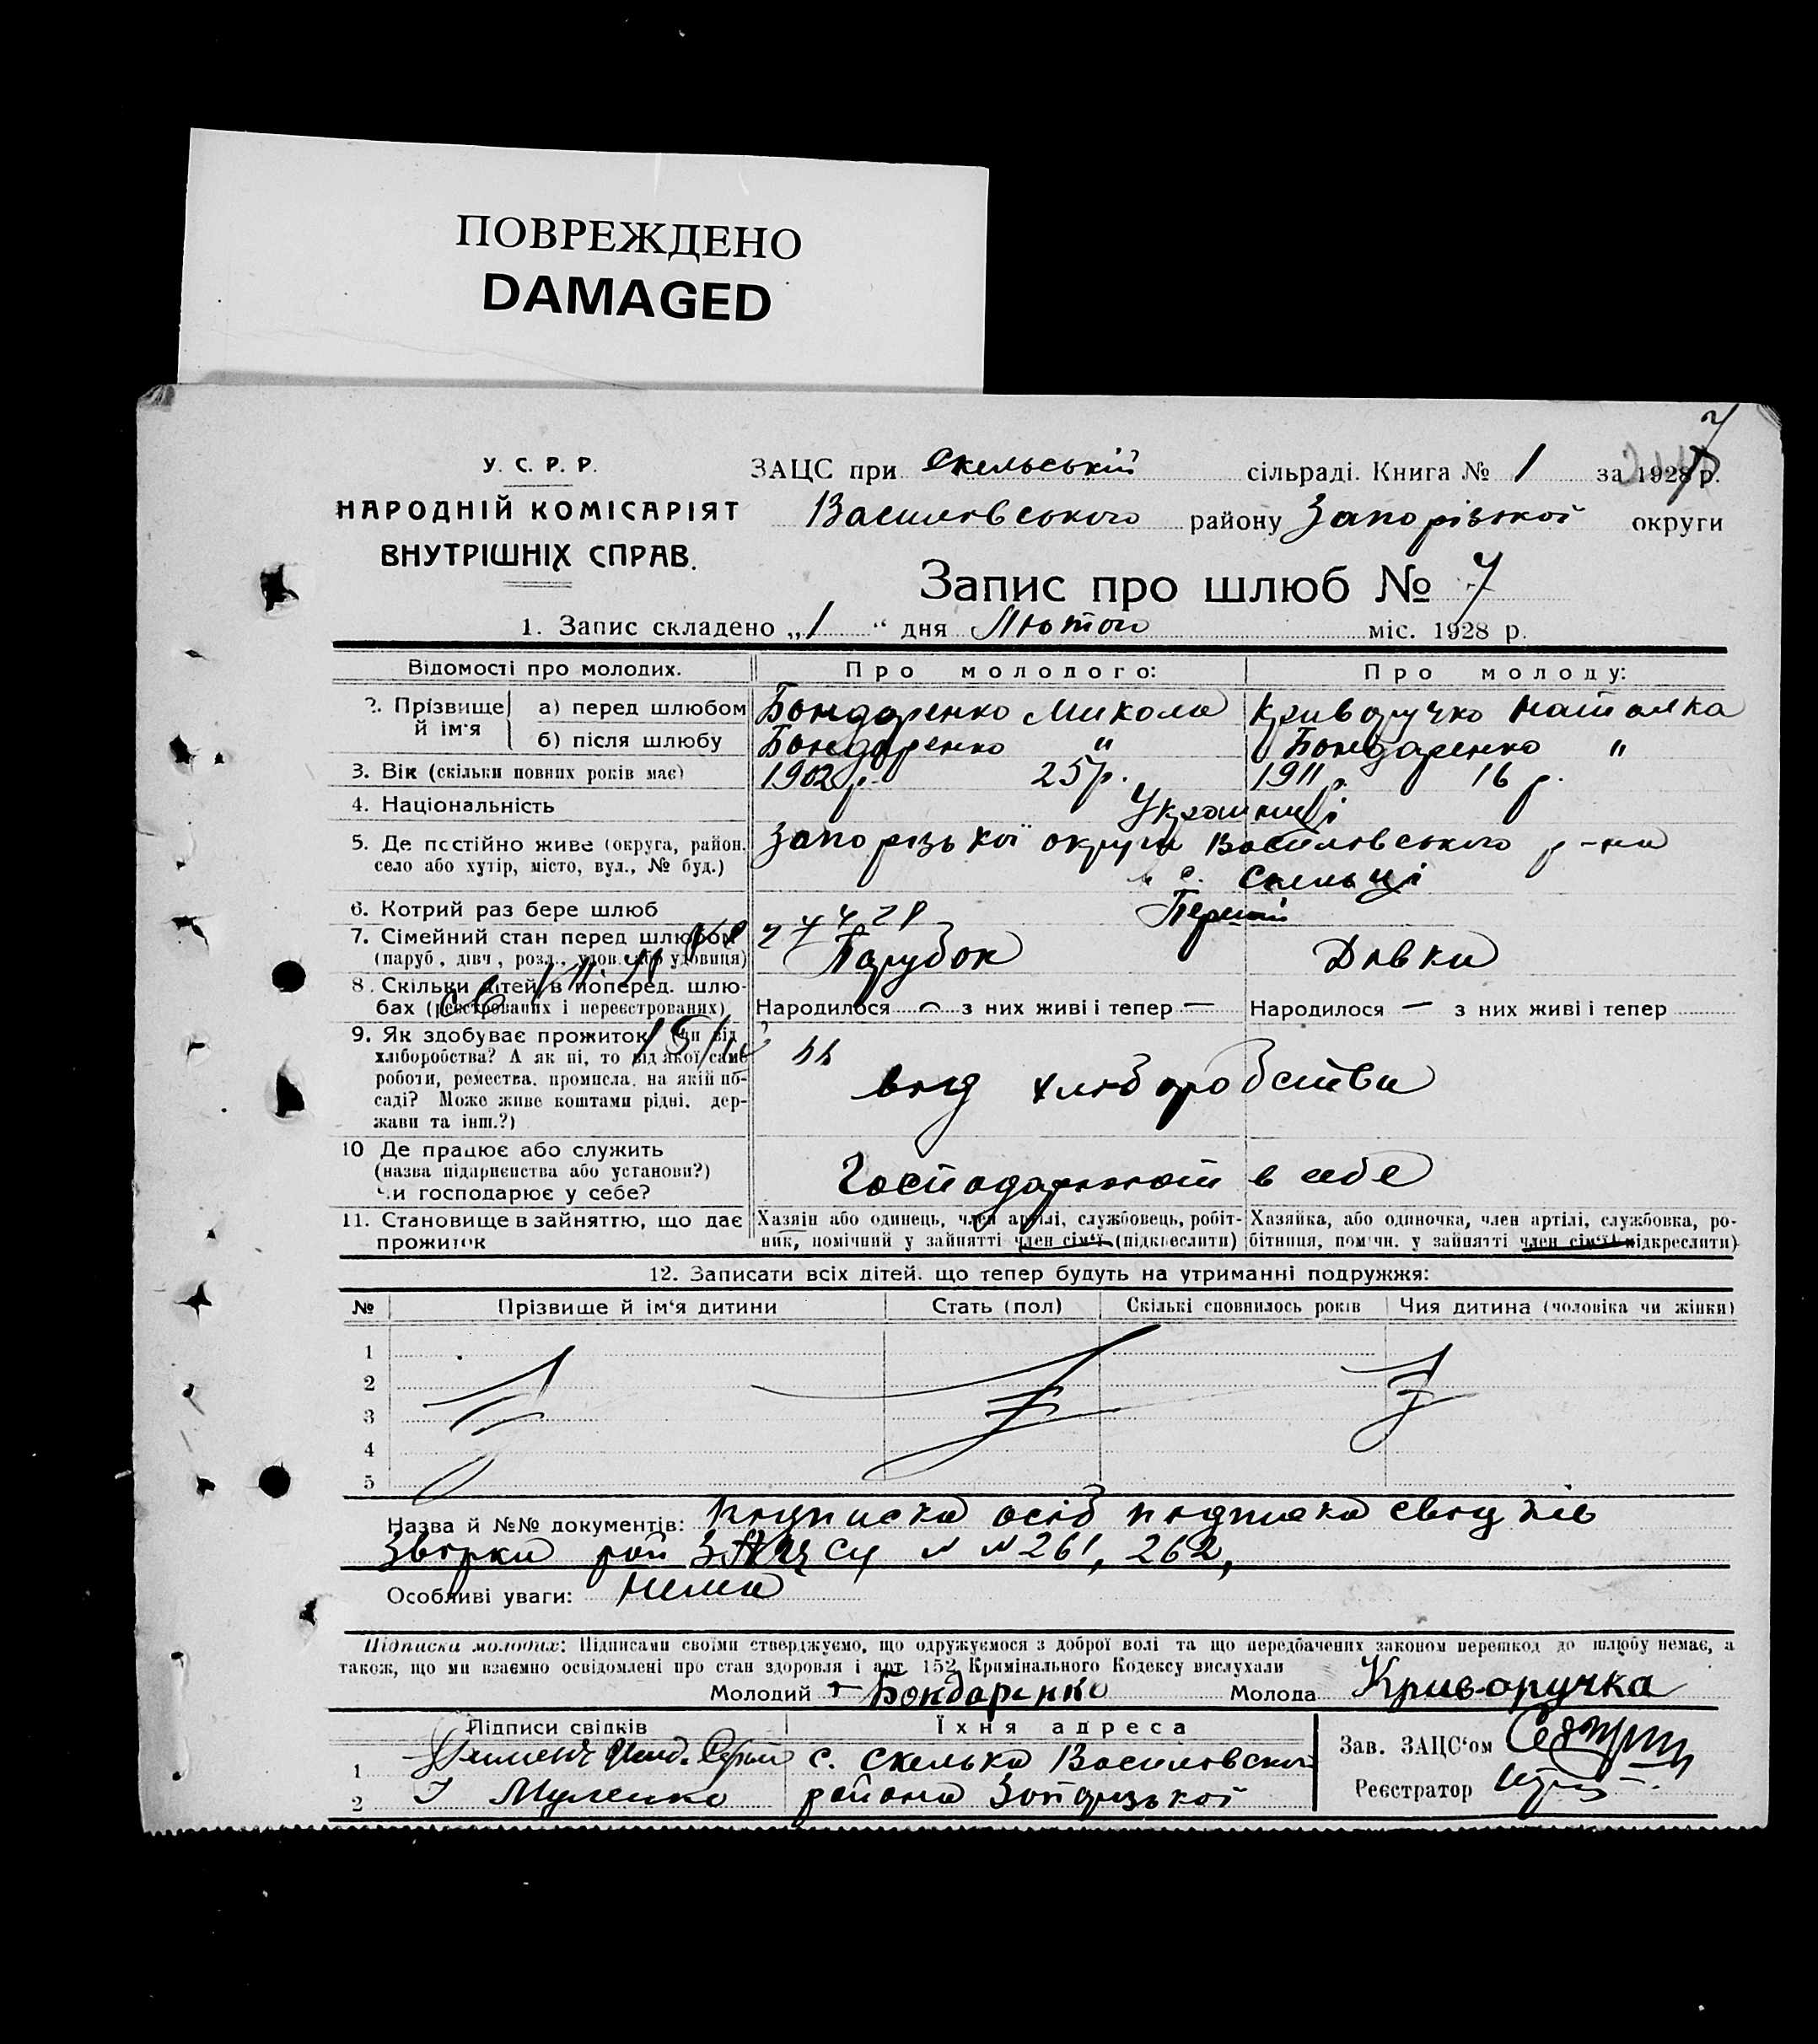 ПОВРЕЖДЕНО
DAMAGED
7
У. С. Р. Р.
НАРОДНІЙ КОМІСАРІЯТ
ВНУТРІШНІХ СПРАВ.
ЗАЦС при Скельській сільраді. Книга № 1 за 1928 р.
Василівського району Запорізької округи
Запис про шлюб № 7
1. Запис складено „1“ дня Лютого міс. 1928 р.
Відомості про молодих. Про молодого: Про молоду:
2. Прізвище й ім'я а) перед шлюбом Бондаренко Микола Криворучко Наталка
б) після шлюбу Бондаренко " Бондаренко "
3. Вік (скільки повних років має) 1902 р. 25 р. 1911 р. 16 р.
4. Національність Українці
5. Де постійно живе (округа, район, Запорізької округи Василівського р-на
село або хутір, місто, вул., № буд.) с. Скельці
6. Котрий раз бере шлюб Перший
7. Сімейний стан перед шлюбом
(паруб., дівч., розл., удов. або удовиця) Парубок Дівка
8. Скільки дітей в поперед. шлю-
бах (реєстрованих і нереєстрованих) Народилося — з них живі і тепер — Народилося — з них живі і тепер
9. Як здобуває прожиток (чи від
хліборобства? А як ні, то від якої саме
роботи, ремества, промисла, на якій по-
саді? Може живе коштами рідні, дер-
жави та інш.?)
від хліборобства
10 Де працює або служить
(назва підприємства або установи?)
чи господарює у себе?
Господарюють в себе
11. Становище в зайняттю, що дає
прожиток
Хазяїн або одинець, член артілі, службовець, робіт-
ник, помічний у зайнятті член сім'ї (підкреслити)
Хазяйка, або одиночка, член артілі, службовка, ро-
бітниця, помічн. у зайнятті член сім'ї підкреслити)
12. Записати всіх дітей, що тепер будуть на утриманні подружжя:
№ Прізвище й ім'я дитини Стать (пол) Скількі сповнилось років Чия дитина (чоловіка чи жінки)
1
2
3
4
5
Назва й №№ документів: підписка осіб підписка свідків
звірки рай ЗАЦСу № № 261, 262,
Особливі уваги: Нема
Підписка молодих: Підписами своїми стверджуємо, що одружуємося з доброї волі та що передбачених законом перешкод до шлюбу немає, а
також, що ми взаємно освідомлені про стан здоровля і арт. 152 Кримінального Кодексу вислухали
Молодий Бондаренко Молода Криворучка
Підписи свідків Їхня адреса
1 с. Скелька Василівської
2 района Запорізької
Зав. ЗАЦС'ом
Реєстратор